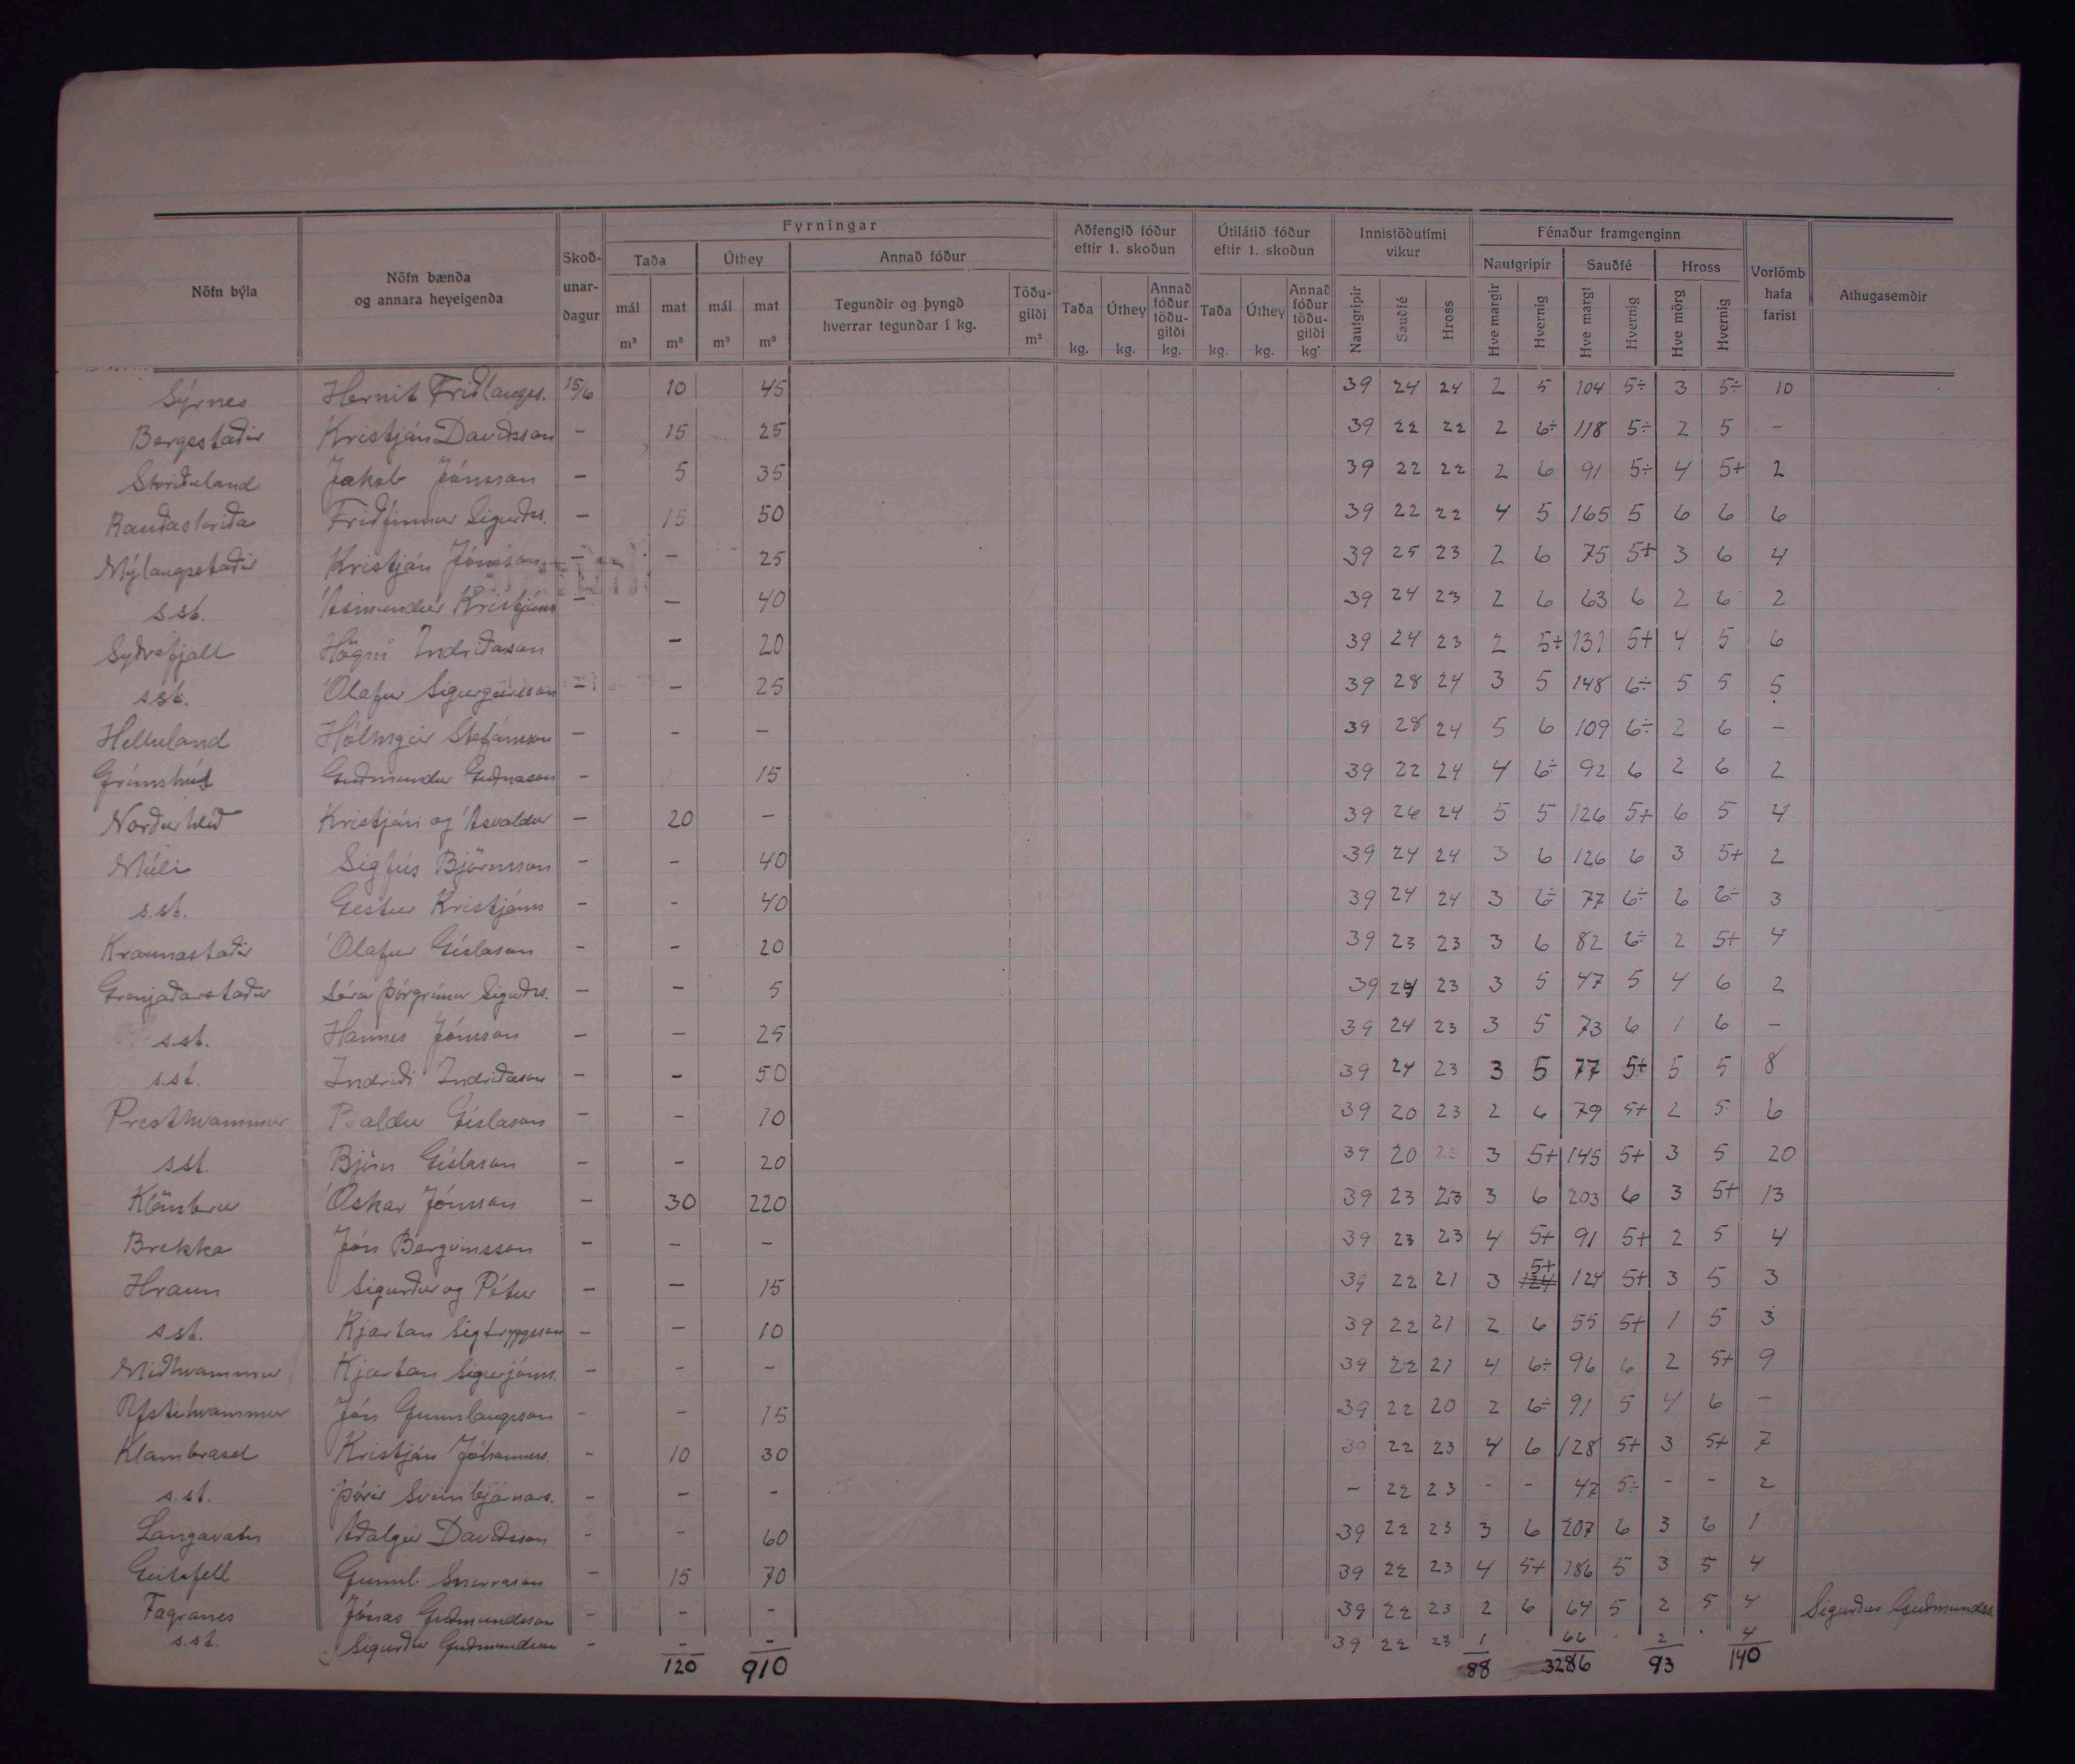 Nöfn býla | Nöfn bænda og annara heyeigenda | Skoð-unar-dagur | Fyrningar | Aðfengið fóður eftir 1. skoðun | Útilátið fóður eftir 1. skoðun | Innistöðutími vikur | Fénaður framgenginn | Vorlömb hafa farist | Athugasemdir
Taða | Úthey | Annað fóður | Nautgripir | Sauðfé | Hross
mál m³ | mat m³ | mál m³ | mat m³ | Tegundir og þyngd hverrar tegundar í kg. | Töðu-gildi m³ | Taða kg. | Úthey kg. | Annað fóður töðu-gildi kg. | Taða kg. | Úthey kg. | Annað fóður töðu-gildi kg. | Nautgripir | Sauðfé | Hross | Hve margir | Hvernig | Hve margt | Hvernig | Hve mörg | Hvernig
Sýrnes Hernit Friðlaugs. 15/6 10 45 39 24 24 2 5 104 5÷ 3 5÷ 10
Bergsstaðir Kristján Davíðsson – 15 25 39 22 22 2 6÷ 118 5÷ 2 5 –
Skriðuland Jakob Jónsson – 5 35 39 22 22 2 6 91 5÷ 4 5+ 2
Rauðaskriða Friðfinnur Sigurðs. – 15 50 39 22 22 4 5 165 5 6 6 6
Mýlaugsstaðir Kristján Jónsson – – 25 39 25 23 2 6 75 5+ 3 6 4
s.st. Ásmundur Kristjáns – – 40 39 24 23 2 6 63 6 2 6 2
Syðrafjall Högni Indriðason – 20 39 24 23 2 5+ 131 5+ 4 5 6
s.st. Ólafur Sigurgeirsson – – 25 39 28 24 3 5 148 6÷ 5 5 5
Helluland Hólmgeir Stefánsson – – – 39 28 24 5 6 109 6÷ 2 6 –
Grímshús Guðmundur Guðnason – 15 39 22 24 4 6÷ 92 6 2 6 2
Norðurhlíð Kristján og Ásvaldur – 20 – 39 26 24 5 5 126 5+ 6 5 4
Múli Sigfús Björnsson – – 40 39 24 24 3 6 126 6 3 5+ 2
s.st. Gestur Kristjáns – – 40 39 24 24 3 6÷ 77 6÷ 6 6÷ 3
Kraunastaðir Ólafur Gíslason – – 20 39 23 23 3 6 82 6÷ 2 5+ 4
Grenjaðarstaður Séra Þorgrímur Sigurðs. – – 5 39 24 23 3 5 47 5 4 6 2
s.st. Hannes Jónsson – – 25 39 24 23 3 5 73 6 1 6 –
s.st. Indriði Indriðason – – 50 39 24 23 3 5 77 5+ 5 5 8
Presthvammur Baldur Gíslason – – 10 39 20 23 2 6 79 5+ 2 5 6
s.st. Björn Gíslason – – 20 39 20 23 3 5+ 145 5+ 3 5 20
Klömbrur Óskar Jónsson – 30 220 39 23 23 3 6 203 6 3 5+ 13
Brekka Jón Bergvinsson – – – 39 23 23 4 5+ 91 5+ 2 5 4
Hraun Sigurður og Pétur – – 15 39 22 21 3 5+ 124 124 5+ 3 5 3
s.st. Kjartan Sigtryggsson – – 10 39 22 21 2 6 55 5+ 1 5 3
Miðhvammur Kjartan Sigurjóns. – – – 39 22 21 4 6÷ 96 6 2 5+ 9
Ystihvammur Jón Gunnlaugsson – – 15 39 22 20 2 6÷ 91 5 4 6 –
Klambrasel Kristján Jóhanness. – 10 30 39 22 23 4 6 128 5+ 3 5+ 7
s.st. Þórir Sveinbjarnars. – – – – 22 23 – – 47 5÷ – – 2
Langavatn Aðalgeir Davíðsson – – 60 39 22 23 3 6 207 6 3 6 1
Geitafell Gunnl. Snorrason – 15 70 39 22 23 4 5+ 186 5 3 5 4
Fagranes Jónas Guðmundsson – – – 39 22 23 2 6 64 5 2 5 4 Sigurður Guðmundss.
s.st. Sigurður Guðmundsson – – – 39 22 23 1 66 2 4
120 910 88 3286 93 140